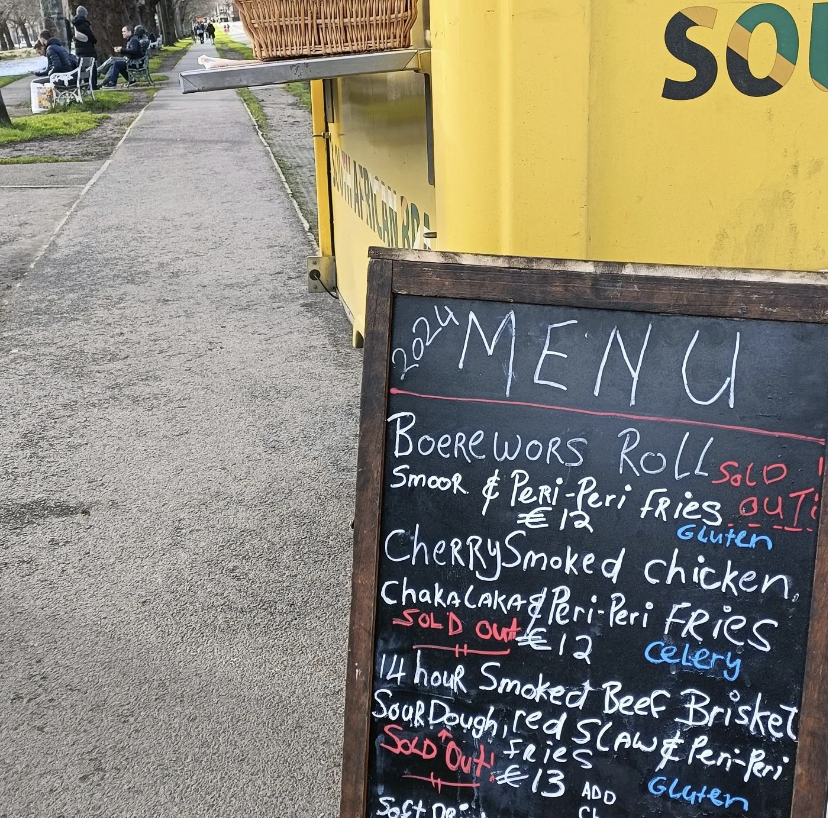 SOU
SOUTH AFRICAN BRA
2024 MENU
BOEREWORS ROLL SOLD
SMOOR & PERI-PERI FRIES OUT!
€12 Gluten
CHERRY SMOKED chicken,
CHAKALAKA & PERI-PERI FRIES
SOLD OUT €12 CELERY
14 hour Smoked Beef Brisket
SOURDough, red SLAW & Peri-Peri
SOLD OUT! FRIES
€13 ADD Gluten
Soft